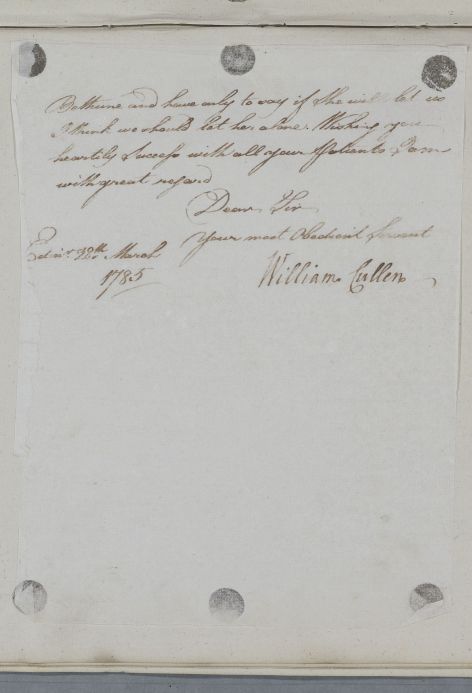 Bethune and have only to say if she will let us
I think we should let her alone. Wishing you
heartily Success with all your Patients I am
with great regard
Dear Sir
Your most Obedient Servant
Edinr. 28th. March
1785
William Cullen